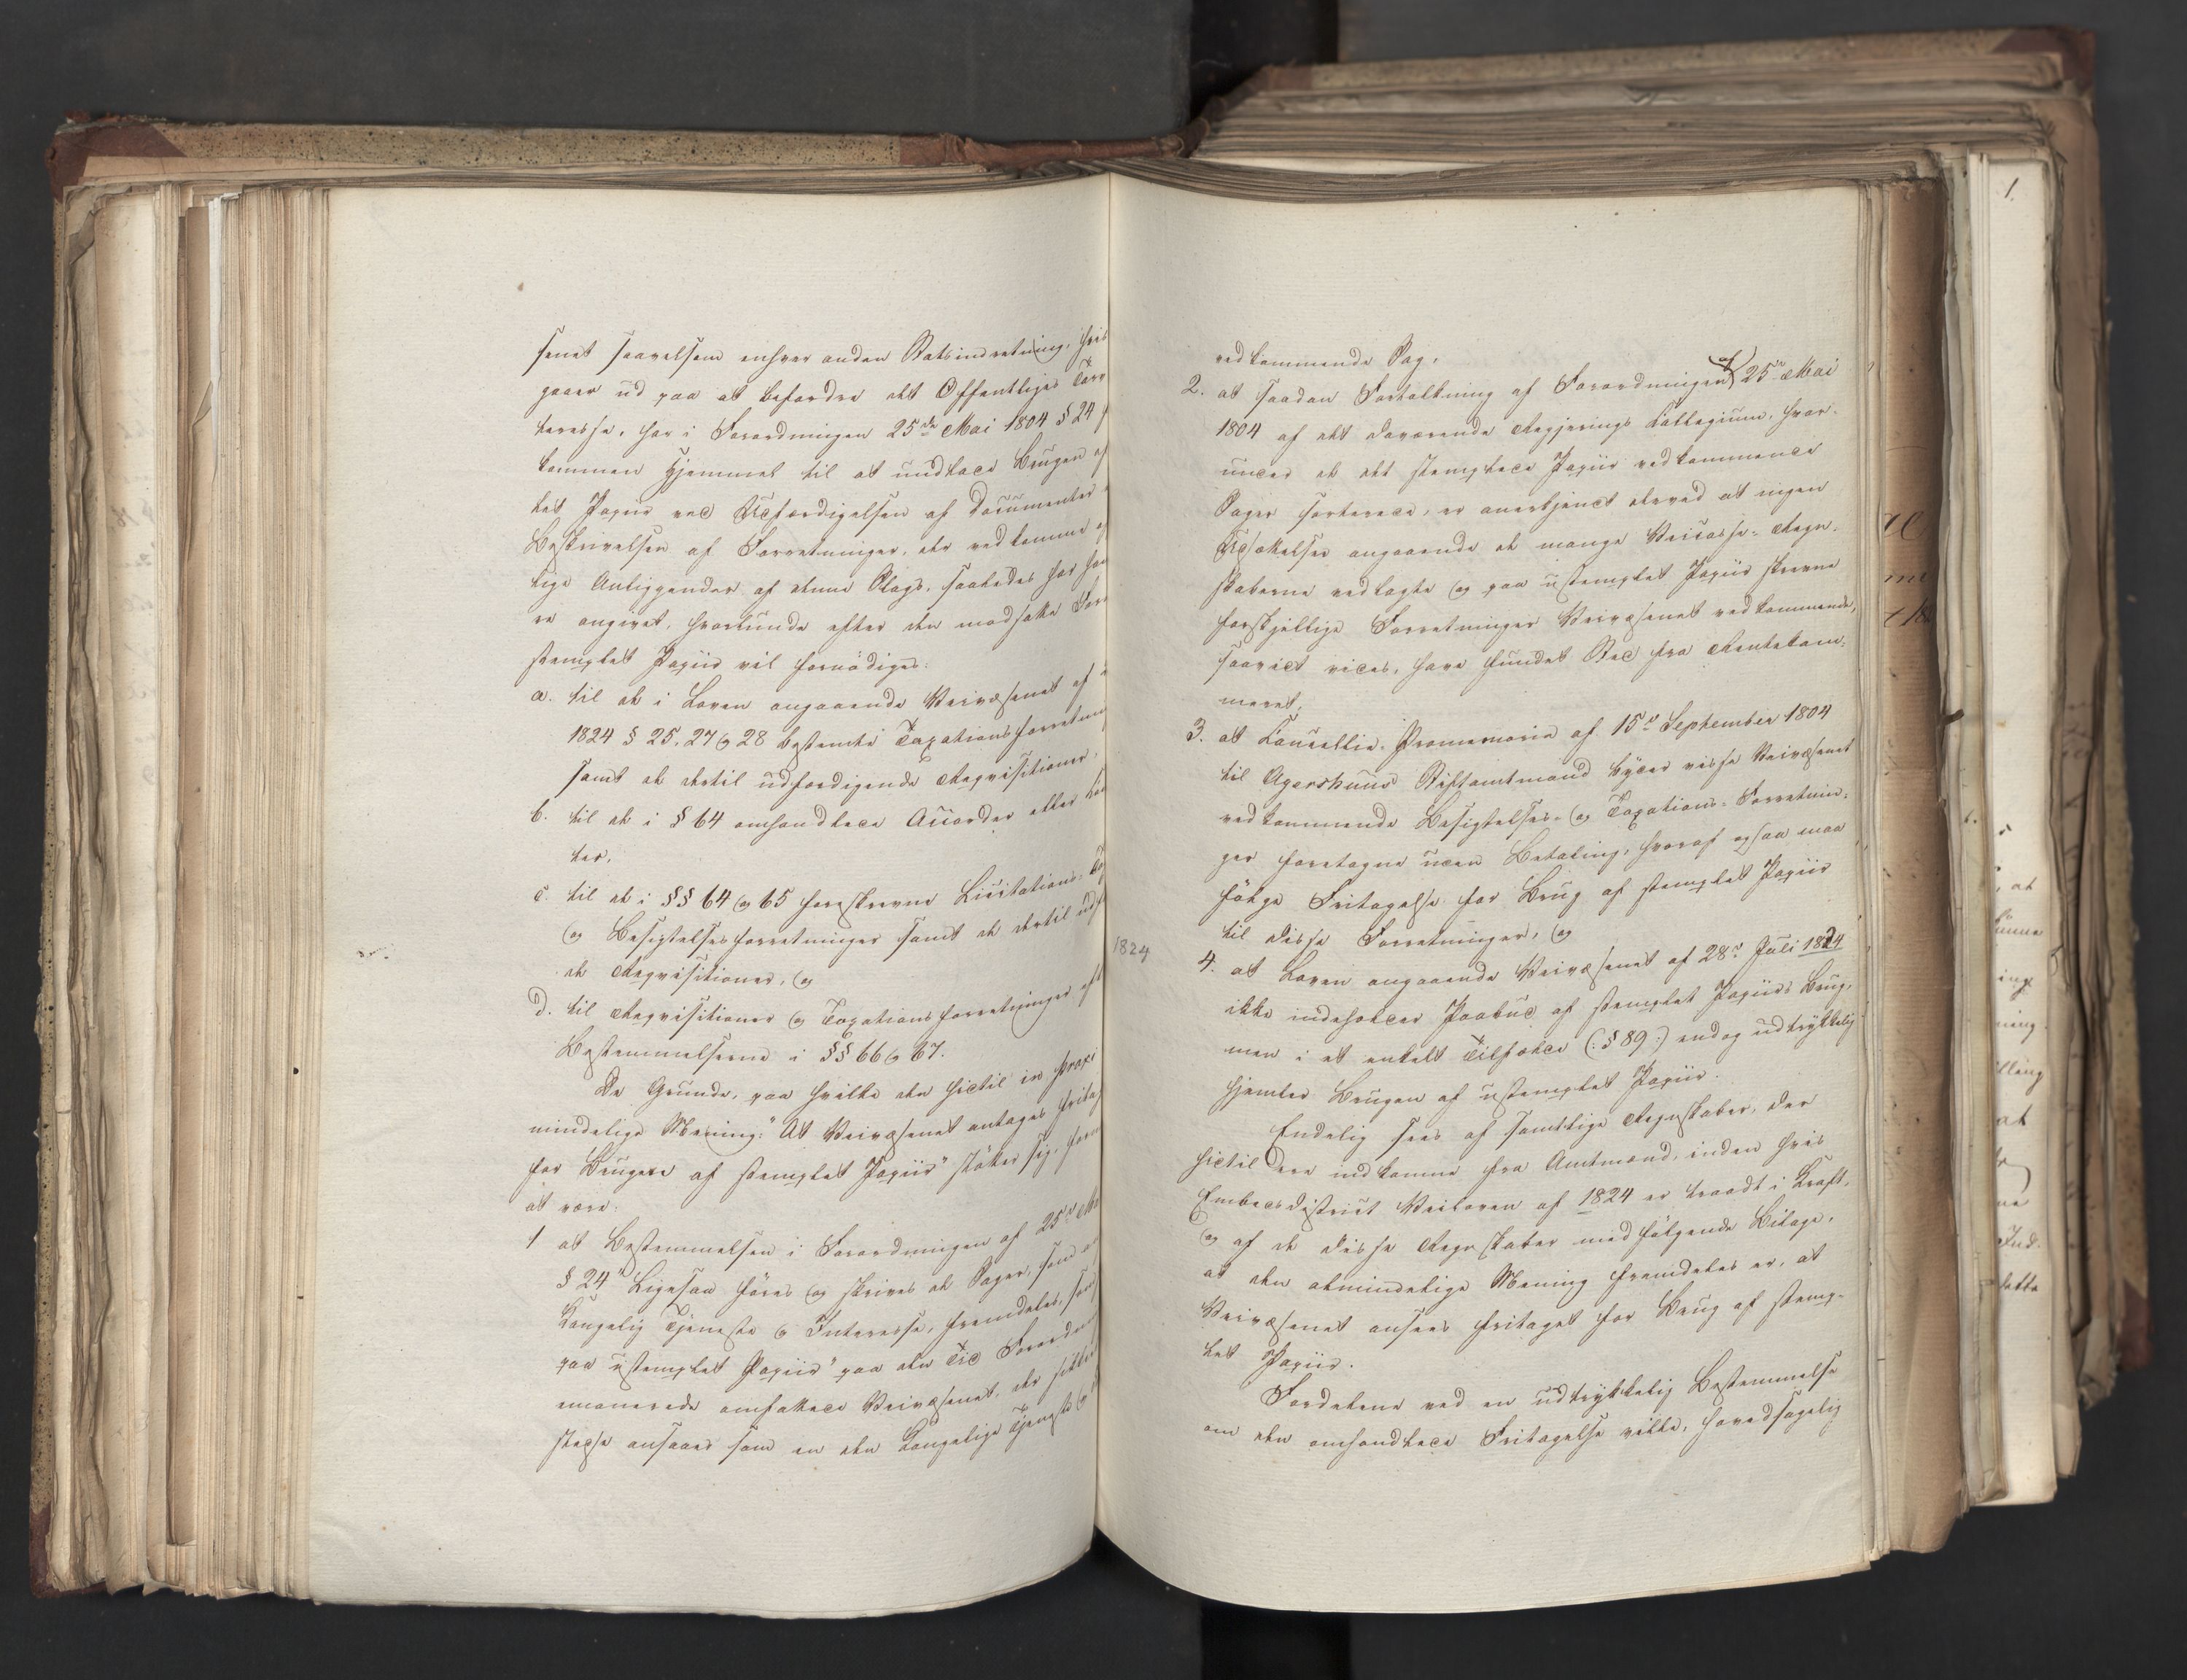 senet saavelsom enhver anden Statsindretning, hvis
gaaer ud paa at befordre det Offentliges Tarv
teresse, har i Forordningen 25de Mai 1804 § 24
kommen Hjemmel til at undlade Brugen af
let Papiir ved Udfærdigelsen af Documenter
Beskrivelsen af Forretninger, der vedkomme
lige Anliggender af denne Slags, saaledes har
re angivet, hvorlunde efter den modsatte For
stemplet Papiir vil fornødiges:
a. til de i Loven angaaende Veivæsenet af
1824 § 25, 27 og 28 bestemte Taxationsforretnin
samt de dertil udfærdigende Reqvisitioner,
b. til de i § 64 omhandlede Accorder eller
ter,
c. til de i §§ 64 og 65 foreskrevne Licitations-
og Besigtelsesforretninger samt de dertil udf
de Reqvisitioner, og
d. til Reqvisitioner og Taxationsforretninger eft
Bestemmelserne i §§ 66 og 67.
De Grunde, paa hvilke den hidtil in praxi
mindelige Mening: "At Veivæsenet antages fritag
for Brugen af stemplet Papiir" støtter sig,
at være:
1 at Bestemmelsen i Forordningen af 25de
§ 24 "Ligesaa føres og skrives de Sager, som
Kongelig Tjeneste og Interesse, fremdeles,
paa ustemplet Papiir" paa den Tid Forordn
emanerede omfattede Veivæsenet, der
stedse ansaaes som en den Kongelige Tjeneste
1824
vedkommende Sag,
2. at saadan Fortolkning af Forordningen af 25de Mai
1804 af det daværende Regjerings Collegium, hvor-
under de det stemplede Papiir vedkommende
Sager sorterede, er anerkjendt derved at ingen
Udsættelser angaaende de mange Veicasse-Regn-
skaberne vedlagte og paa ustemplet Papiir skrevne
forskjellige Forretninger Veivæsenet vedkommende,
saavidt vides, have fundet Sted fra Rentekam-
meret,
3. at Cancellie-Promemoria af 15de September 1804
til Agershuus Stiftamtmand byder visse Veivæsenet
vedkommende Besigtelses- og Taxations-Forretnin-
ger foretagne uden Betaling, hvoraf ogsaa maa
følge Fritagelse for Brug af stemplet Papiir
til disse Forretninger, og
4. at Loven angaaende Veivæsenet af 28de Juli 1824
ikke indeholder Paabud af stemplet Papiirs Brug,
men i et enkelt Tilfælde (: § 89 :) endog udtrykkelig
hjemler Brugen af ustemplet Papiir.
Endelig sees af samtlige Regnskaber, der
hidtil ere indkomne fra Amtmænd, inden hvis
Embedsdistrict Veiloven af 1824 er traadt i Kraft,
og af de disse Regnskaber medfølgende Bilage,
at den almindelige Mening fremdeles er, at
Veivæsenet ansees fritaget for Brug af stemp-
let Papiir.
Fordelene ved en udtrykkelig Bestemmelse
om den omhandlede Fritagelse ville, hovedsagelig